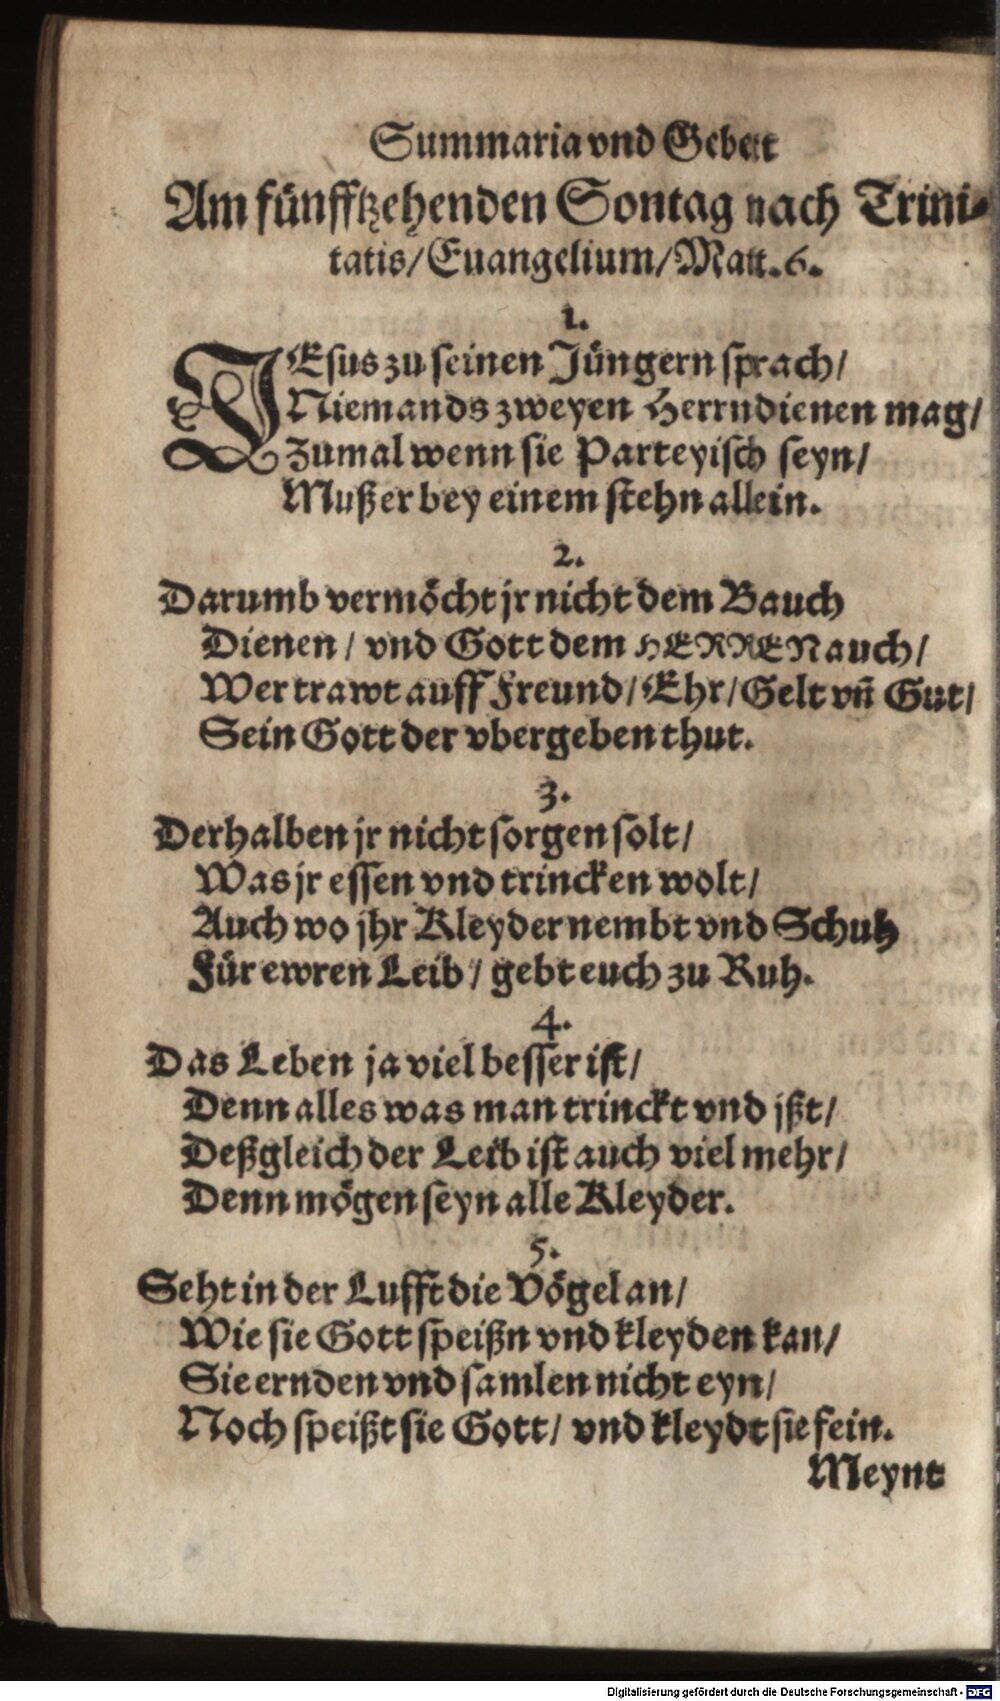 Summaria vnd Gebett
Am fünfftzehenden Sontag nach Trini-
tatis/ Euangelium/ Matt. 6.
1.
JEsus zu seinen Jüngern sprach/
Niemands zweyen Herrn dienen mag/
Zumal wenn sie Parteyisch seyn/
Mußer bey einem stehn allein.
2.
Darumb vermöcht jr nicht dem Bauch
Dienen/ vnd Gott dem HERREN auch/
Wer trawt auff Freund/ Ehr/ Gelt vñ Gut/
Sein Gott der vbergeben thut.
3.
Derhalben jr nicht sorgen solt/
Was jr essen vnd trincken wolt/
Auch wo jhr Kleyder nembt vnd Schuh
Für ewren Leib/ gebt euch zu Ruh.
4.
Das Leben ja viel besser ist/
Denn alles was man trinckt vnd jßt/
Deßgleich der Leib ist auch viel mehr/
Denn mögen seyn alle Kleyder.
5.
Seht in der Lufft die Vögel an/
Wie sie Gott speißn vnd kleyden kan/
Sie ernden vnd samlen nicht eyn/
Noch speißt sie Gott/ vnd kleydt sie fein.
Meynt
Digitalisierung gefördert durch die Deutsche Forschungsgemeinschaft - DFG